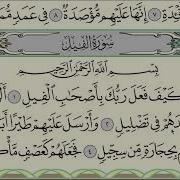 ـدَةِ ٧ إِنَّهَا عَلَيْهِم مُّؤْصَدَةٌ ٨ فِي عَمَدٍ مُّمَـ
سُورَةُ الفِيلِ
بِسْمِ اللَّهِ الرَّحْمَٰنِ الرَّحِيمِ
كَيْفَ فَعَلَ رَبُّكَ بِأَصْحَابِ الْفِيلِ ١ أَلَـ
ـدَهُمْ فِي تَضْلِيلٍ ٢ وَأَرْسَلَ عَلَيْهِمْ طَيْرًا أَبَـ
ـم بِحِجَارَةٍ مِّن سِجِّيلٍ ٤ فَجَعَلَهُمْ كَعَصْفٍ مَّأْكُـ